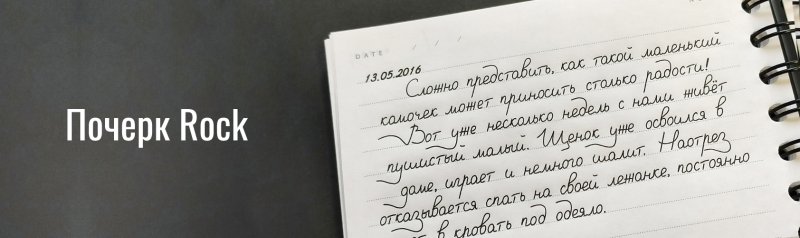 Почерк Rock
DATE / / /
13.05.2016
Сложно представить, как такой маленький
комочек может приносить столько радости!
Вот уже несколько недель с нами живёт
пушистый малый. Щенок уже освоился в
доме, играет и немного шалит. Наотрез
отказывается спать на своей лежанке, постоянно
в кровать под одеяло.